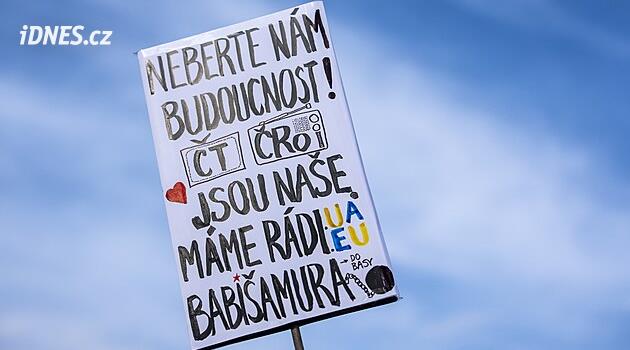 iDNES.cz
NEBERTE NÁM
BUDOUCNOST!
ČT ČRo
JSOU NAŠE,
MÁME RÁDI: UA
EU
→ DO
BASY
BABIŠAMURA